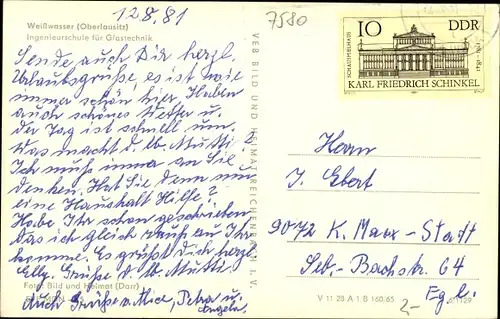 12.8.81
7580
Weißwasser (Oberlausitz)
Ingenieurschule für Glastechnik
Sende auch Dir herzl.
Urlaubsgrüße, es ist wie
immer schön hier. Haben
auch schönes Wetter u.
der Tag ist schnell um.
Was macht d. lb. Mutti?
Ich muß immer an Sie
denken. Hat Sie denn nun
eine Haushalt Hilfe?
Habe Ihr schon geschrieben
das ich gleich rauf zu Ihr
komme. Es grüßt Dich herzl.
Elly. Grüße d. lb. Mutti
Foto: Bild und Heimat (Darr)
Auch Grüße v. Petra u.
VEB BILD UND HEIMAT REICHENBACH I. V.
10 DDR
SCHAUSPIELHAUS
1781-1841
KARL FRIEDRICH SCHINKEL
Herrn
J. Ebert
9072 K. Marx-Stadt
Seb.-Bachstr. 64
V 11 28 A 1 B 160/65
2-
Egl.